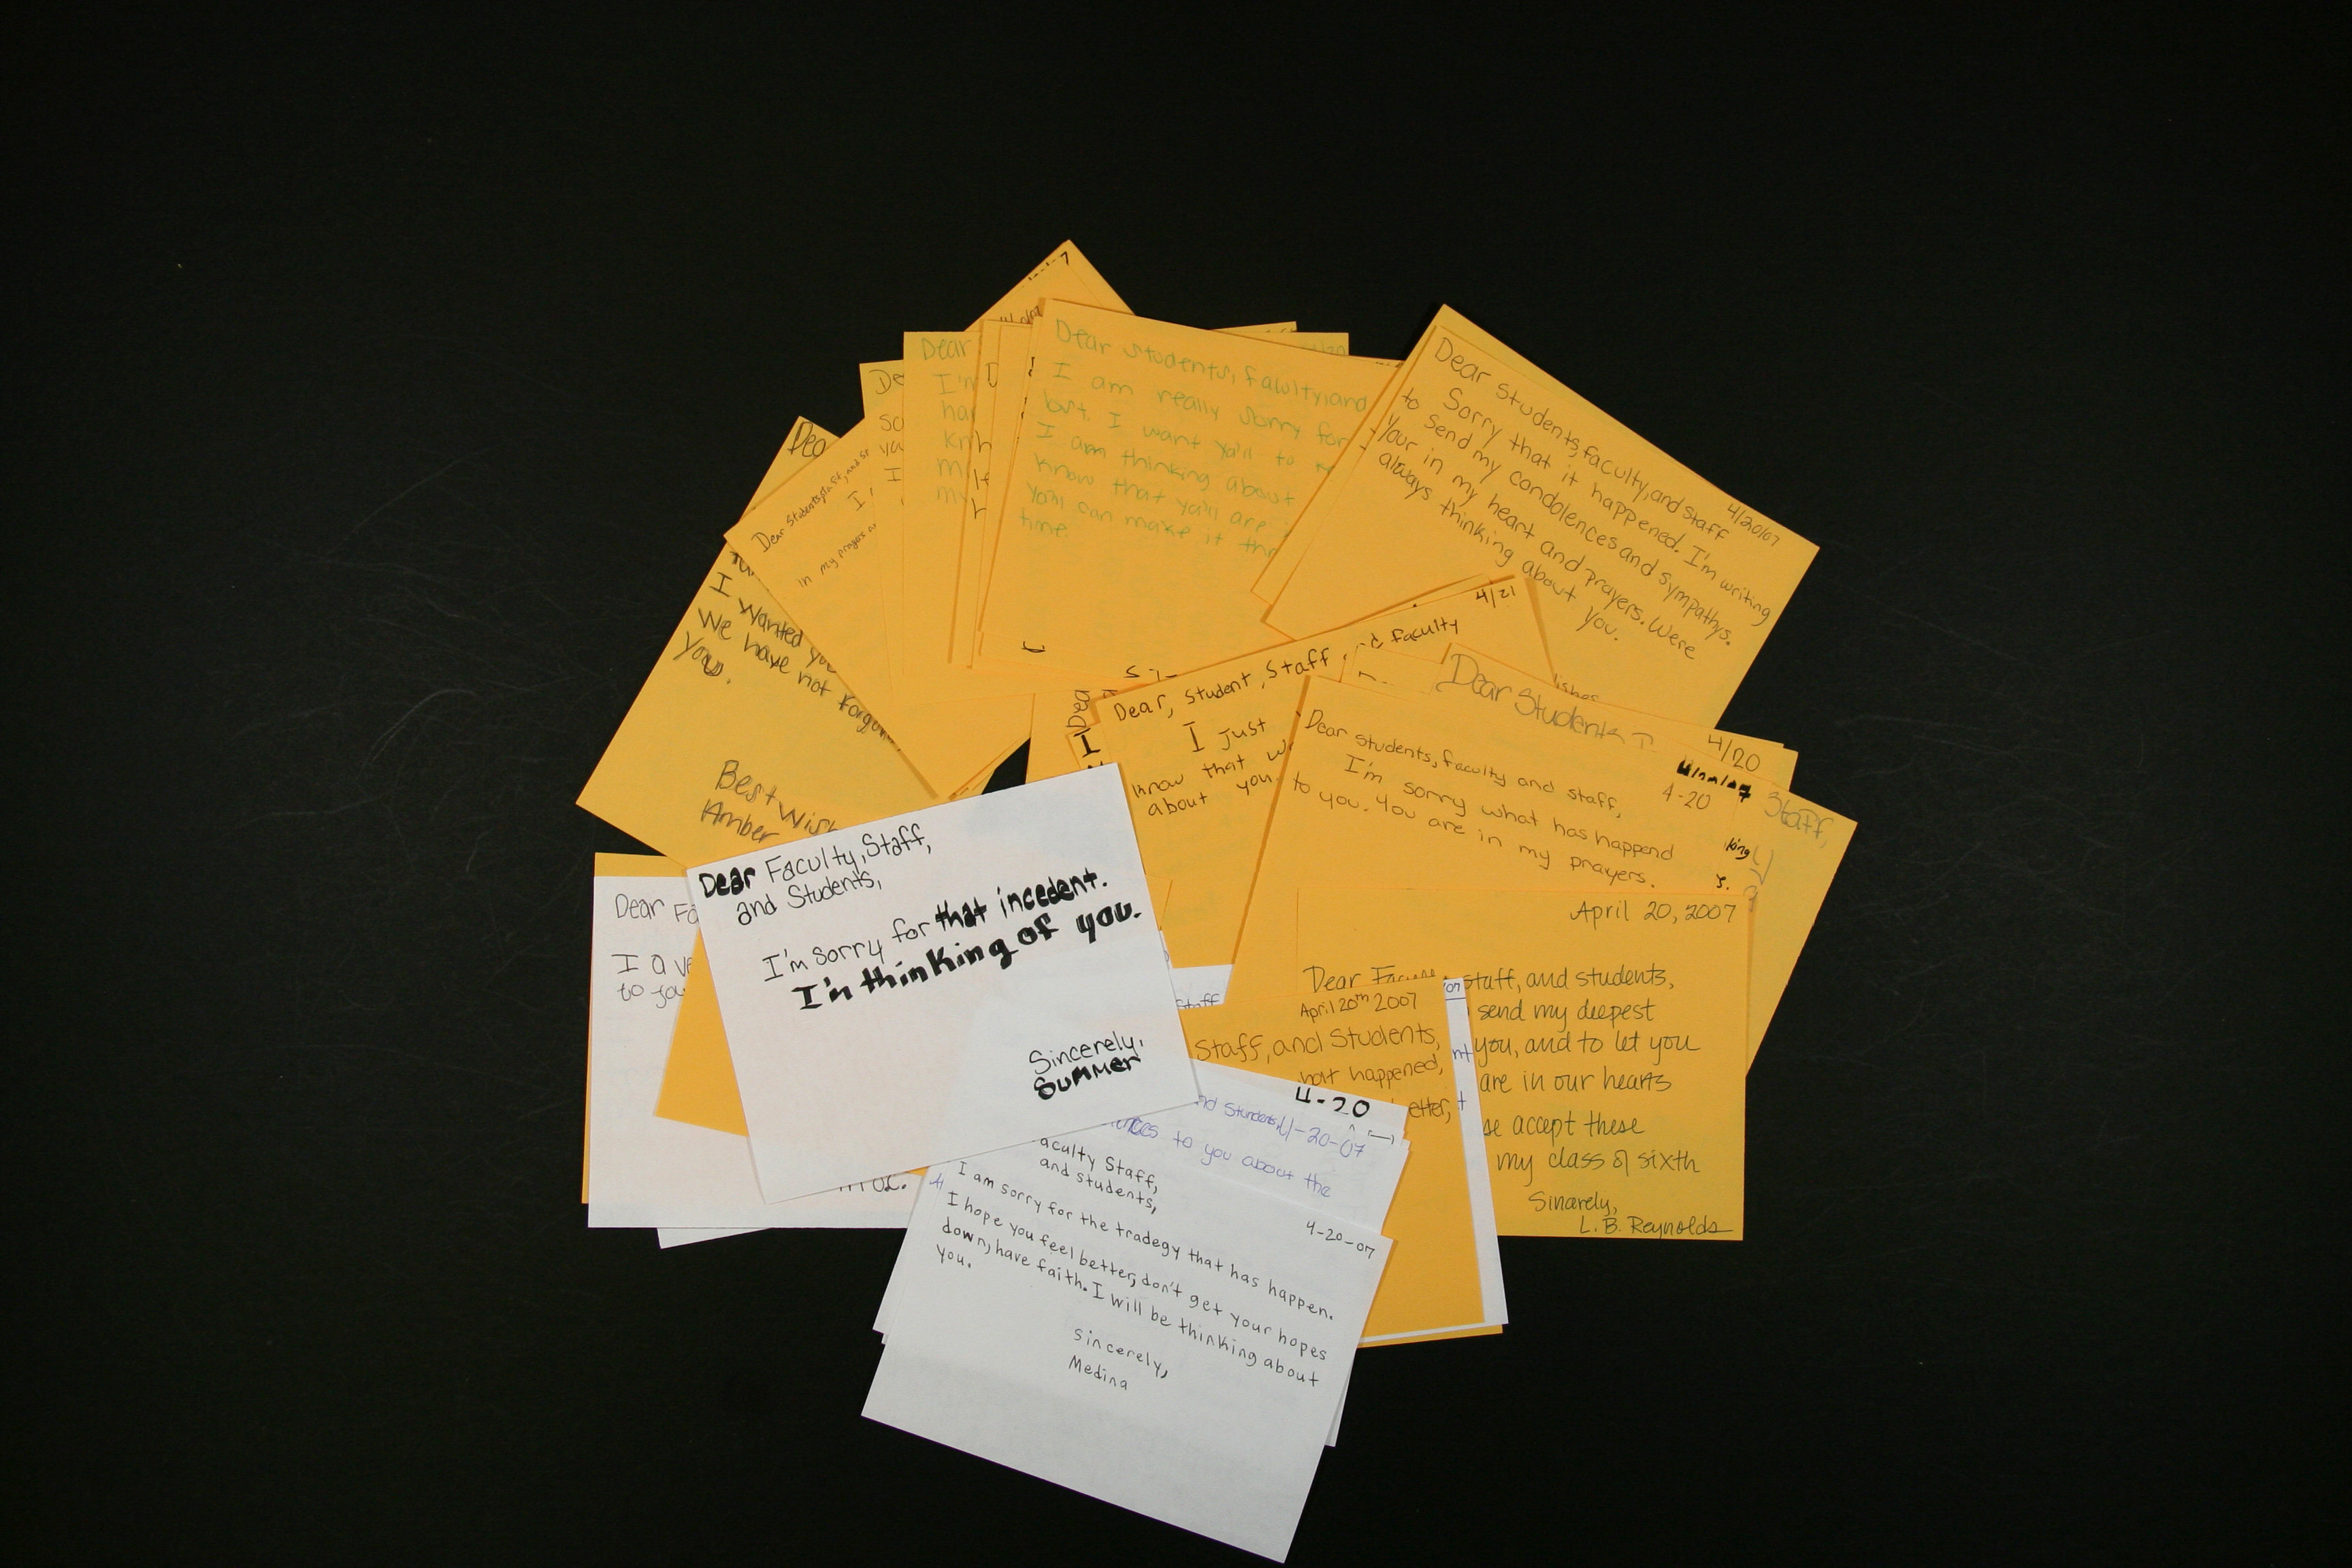 Dear students, faculty, and
I am really sorry for
but I want ya'll to
I am thinking about
know that ya'll are
ya'll can make it thr
time.
4/20/07
Dear Students, faculty, and staff
Sorry that it happened. I'm writing
to send my condolences and sympathys.
Your in my heart and prayers. Were
always thinking about you.
Dear
I'm
Dear Students, staff, and st
I
in my prayers
I wanted you
We have not forgo
you.
Best Wish
Amber
4/21
Dear, Student, Staff,
d faculty
I just
know that w
about you
Dear Students
4/20
4-20
Staff,
Dear students, faculty and staff,
I'm sorry what has happend
to you. You are in my prayers.
king
April 20, 2007
Dear staff, and students,
send my deepest
you, and to let you
are in our hearts
se accept these
my class of sixth
Sincerely,
L. B. Reynolds
April 20th 2007
Staff, and Students,
hat happened,
etter,
Dear Fa
I
to
Dear Faculty, Staff,
and Students,
I'm sorry for that incedent.
I'm thinking of you.
Sincerely,
Summer
4-20
nd Students, 4-20-07
to you about the
4-20-07
aculty Staff,
and students,
I am sorry for the tradegy that has happen.
I hope you feel better, don't get your hopes
down, have faith. I will be thinking about
you.
Sincerely,
Medina